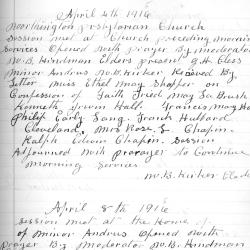 April 4th 1916
Worthington Presbyterian Church
Session met at Church preceding Morning
Services Opened with prayer By moderator
W.B. Hindman Elders present G.H. Cless
Minor Andrus W.B. Kirker Received By
Letter Miss Ethel May Shopper on
Confession of Faith Fried May La Brush
Kenneth Irwin Hall. Francis May
Philip Early Lang. Frank Hubbard
Cleveland, Mrs Rose L. Chapin.
Ralph Edwin Chapin. Session
Adjourned with prayer to Continue
Morning Services
W.B. Kirker Clerk
April 8th 1916
Session met at the Home of
of Minor Andrus Opened with
prayer By Moderator W.B. Hindman